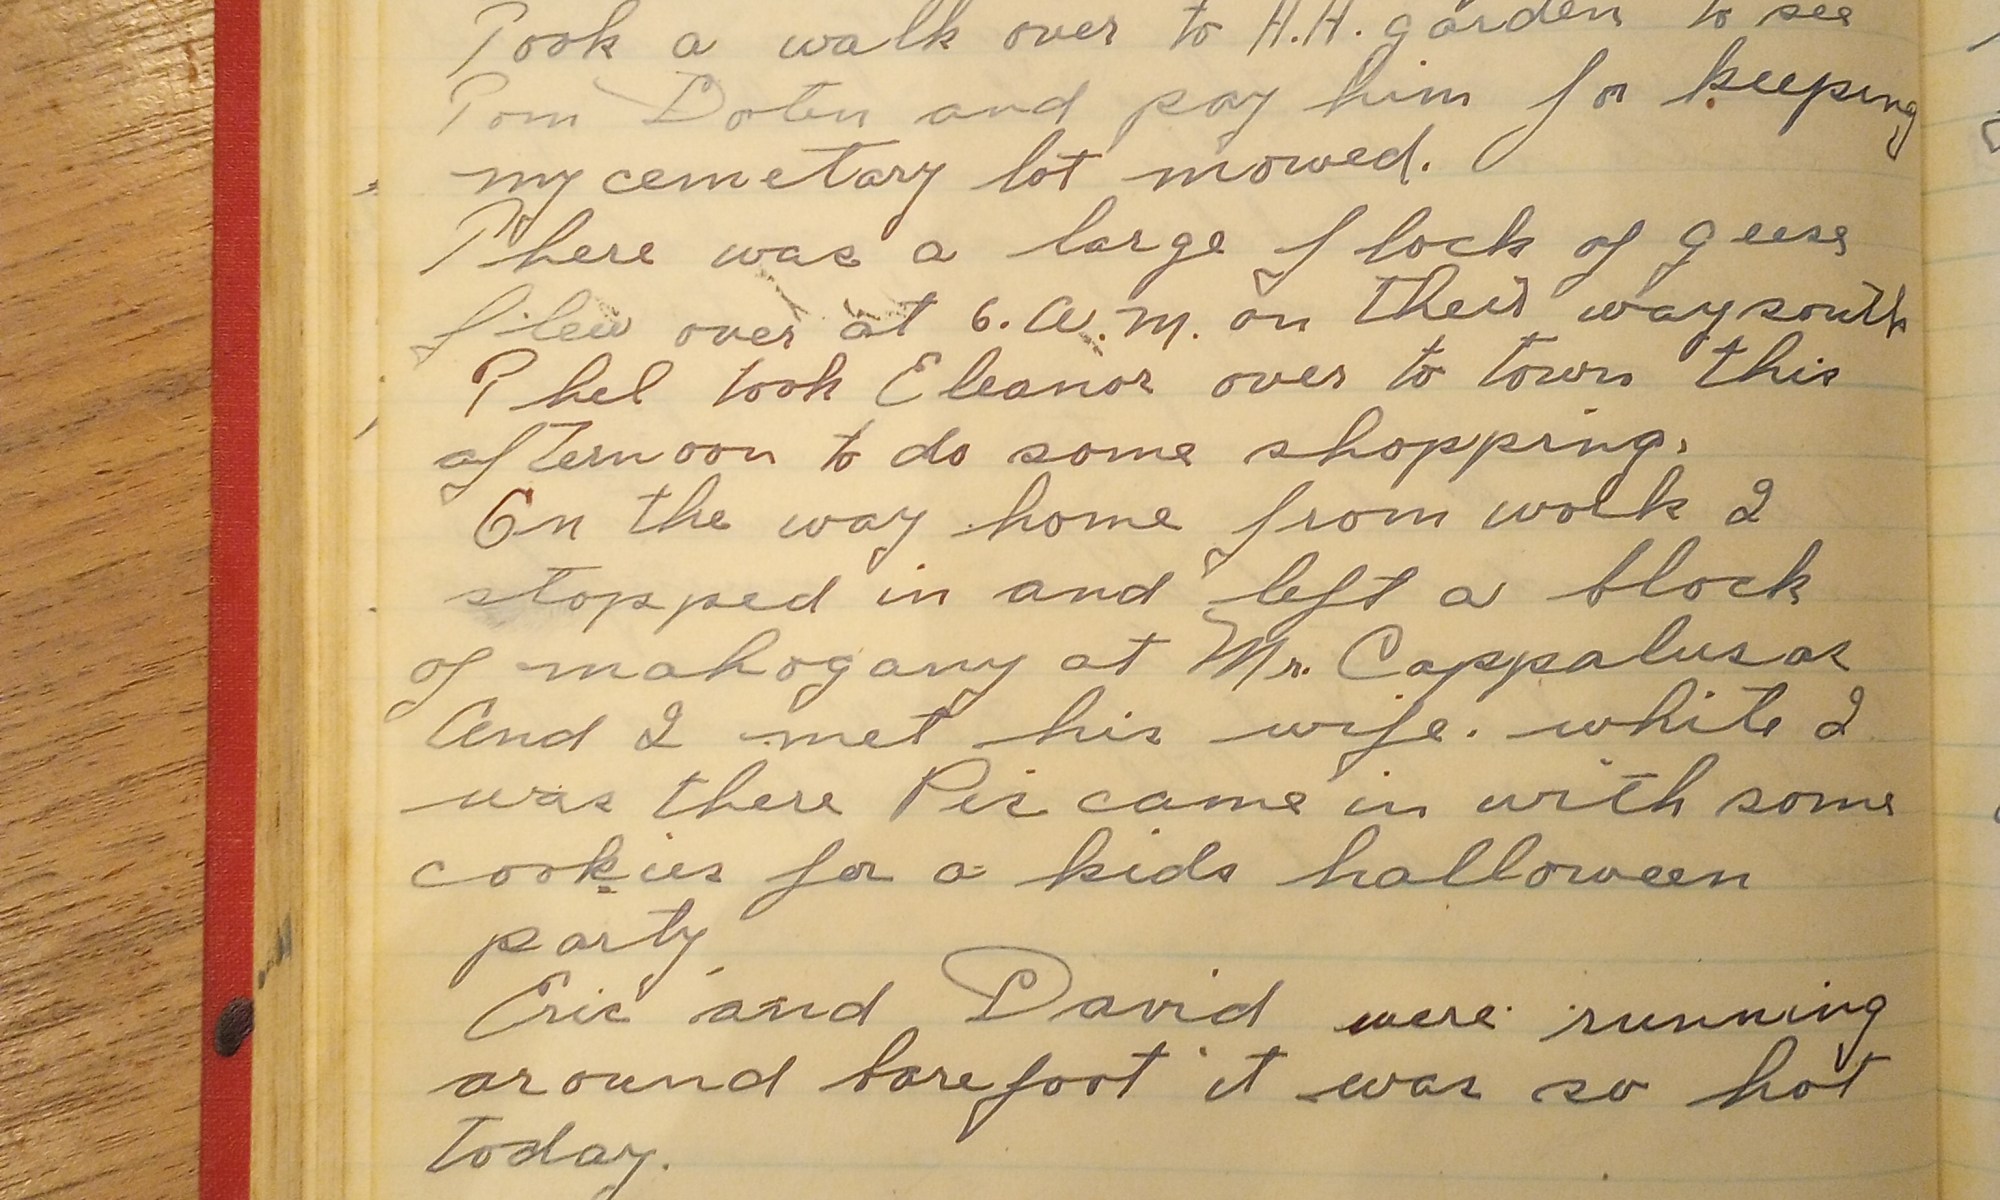 Took a walk over to H.H. garden to see
Tom Doten and pay him for keeping
my cemetary lot mowed.
There was a large flock of geese
flew over at 6. A.M. on their way south
Phel took Eleanor over to town this
afternoon to do some shopping.
On the way home from work I
stopped in and left a block
of mahogany at Mr. Cappalusas
And I met his wife. while I
was there Pis came in with some
cookies for a kids halloween
party
Eric and David were running
around barefoot it was so hot
today.